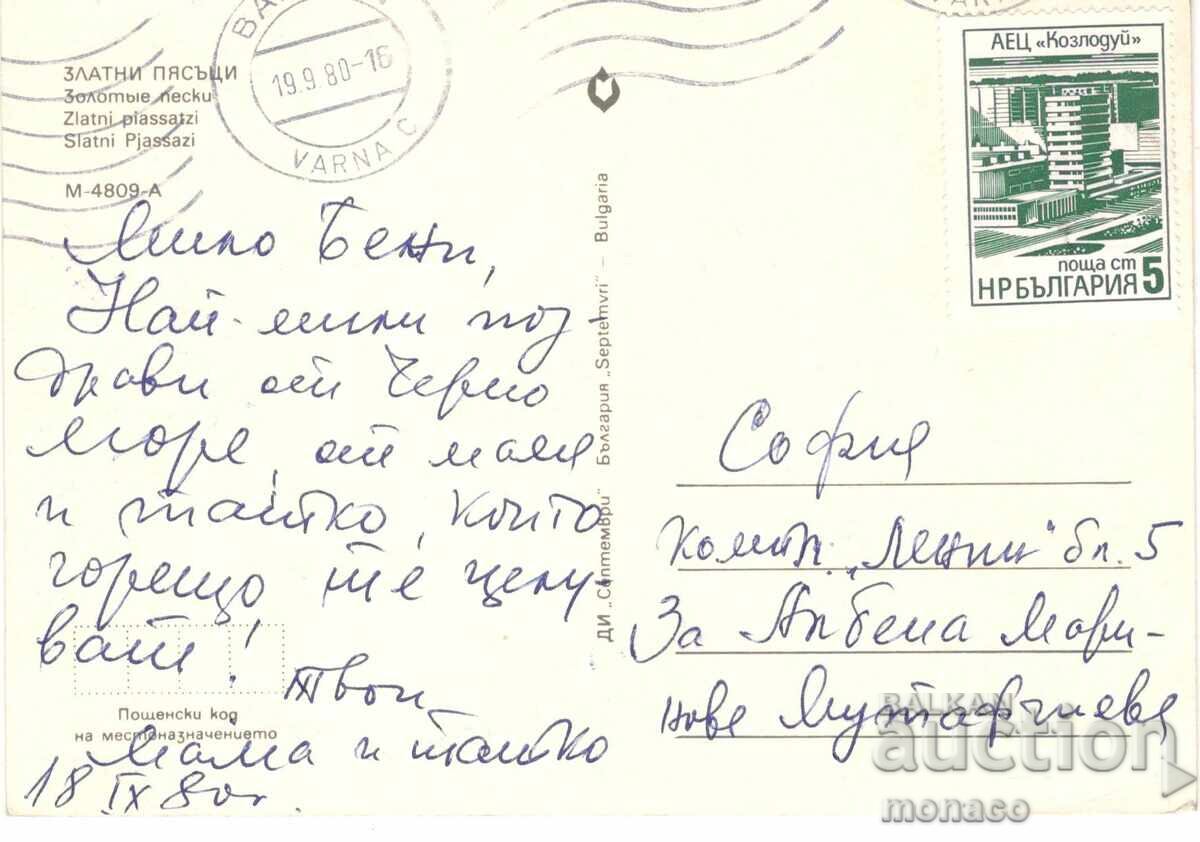 VARNA C
19.9.80-16
ЗЛАТНИ ПЯСЪЦИ
Золотые пески
Zlatni piassatzi
Slatni Pjassazi
М-4809-А
Мило Бени,
Най-мили поз-
драви от Черно
море, от мама
и татко, които
горещо те целу-
ват!
Твои
Мама и татко
18 IX 80г.
Пощенски код
на местоназначението
ДИ „Септември" България „Septemvri" – Bulgaria
АЕЦ «Козлодуй»
поща ст
НР БЪЛГАРИЯ 5
София
Компл. „Ленин" бл. 5
За Албена Мари-
нова Мутафчиева
BALKAN
auction
monaco